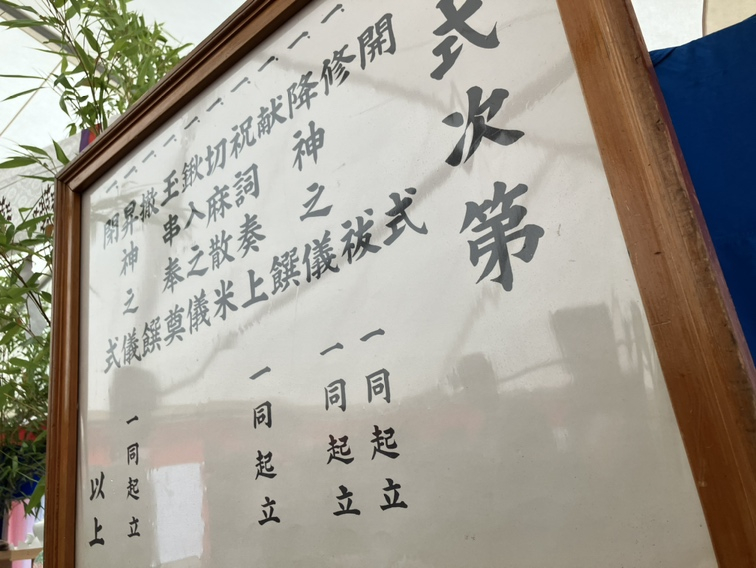 式次第
一、開式
一、修祓 一同起立
一、降神之儀 一同起立
一、献饌
一、祝詞奏上 一同起立
一、切麻散米
一、鍬入之儀
一、玉串奉奠
一、撤饌
一、昇神之儀 一同起立
一、閉式
以上